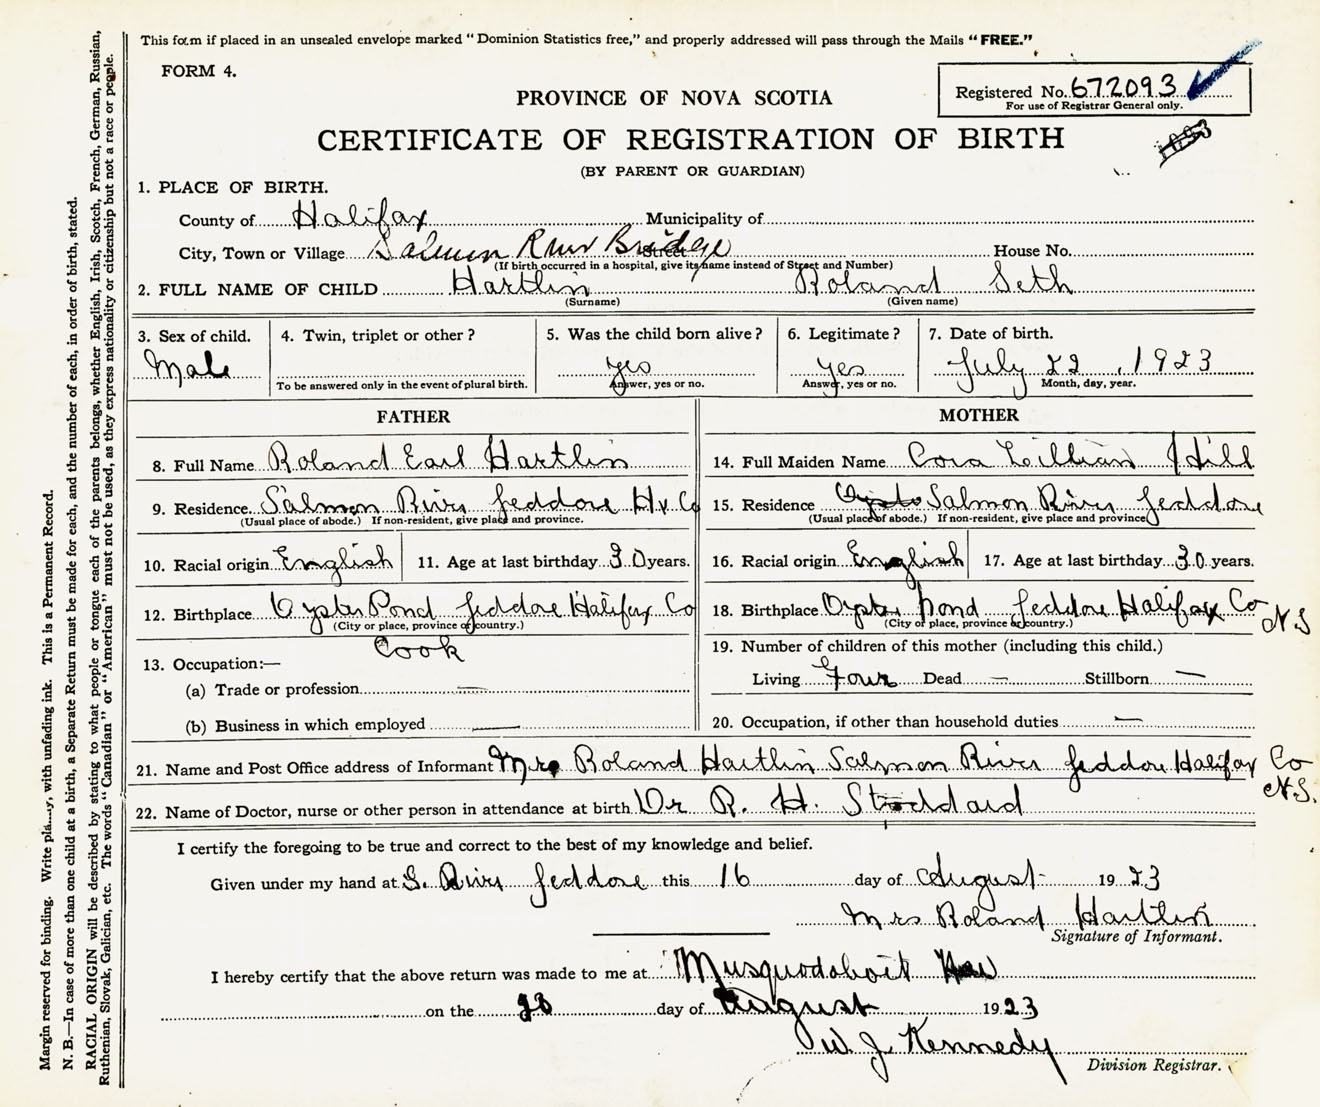 This form if placed in an unsealed envelope marked "Dominion Statistics free," and properly addressed will pass through the Mails "FREE."
FORM 4.
Registered No. 672093
For use of Registrar General only.
PROVINCE OF NOVA SCOTIA
CERTIFICATE OF REGISTRATION OF BIRTH
(BY PARENT OR GUARDIAN)
1. PLACE OF BIRTH.
County of Halifax Municipality of
City, Town or Village Salmon River Bridge Street House No.
(If birth occurred in a hospital, give its name instead of Street and Number)
2. FULL NAME OF CHILD Hartlin Roland Seth
(Surname) (Given name)
3. Sex of child. 4. Twin, triplet or other? 5. Was the child born alive? 6. Legitimate? 7. Date of birth.
Male yes yes July 22, 1923
To be answered only in the event of plural birth. Answer, yes or no. Answer, yes or no. Month, day, year.
FATHER MOTHER
8. Full Name Roland Earl Hartlin 14. Full Maiden Name Cora Lillian Hill
9. Residence Salmon River Jeddore Hx Co 15. Residence Salmon River Jeddore
(Usual place of abode.) If non-resident, give place and province. (Usual place of abode.) If non-resident, give place and province
10. Racial origin English 11. Age at last birthday 30 years. 16. Racial origin English 17. Age at last birthday 30 years.
12. Birthplace Oyster Pond Jeddore Halifax Co 18. Birthplace Oyster Pond Jeddore Halifax Co N.S
(City or place, province or country.) (City or place, province or country.)
13. Occupation:— Cook 19. Number of children of this mother (including this child.)
(a) Trade or profession — Living Four Dead — Stillborn —
(b) Business in which employed — 20. Occupation, if other than household duties —
21. Name and Post Office address of Informant Mrs Roland Hartlin Salmon River Jeddore Halifax Co N.S.
22. Name of Doctor, nurse or other person in attendance at birth Dr R. H. Stoddard
I certify the foregoing to be true and correct to the best of my knowledge and belief.
Given under my hand at S. River Jeddore this 16 day of August 1923
Mrs Roland Hartlin
Signature of Informant.
I hereby certify that the above return was made to me at Musquodoboit
on the day of August 1923
W. J. Kennedy
Division Registrar.
Margin reserved for binding. Write with unfading ink. This is a Permanent Record.
N. B.—In case of more than one child at a birth, a Separate Return must be made for each, and the number of each, in order of birth, stated.
RACIAL ORIGIN will be described by stating to what people or tongue each of the parents belongs, whether English, Irish, Scotch, French, German, Russian,
Ruthenian, Slovak, Galician, etc. The words "Canadian" or "American" must not be used, as they express nationality or citizenship but not a race or people.